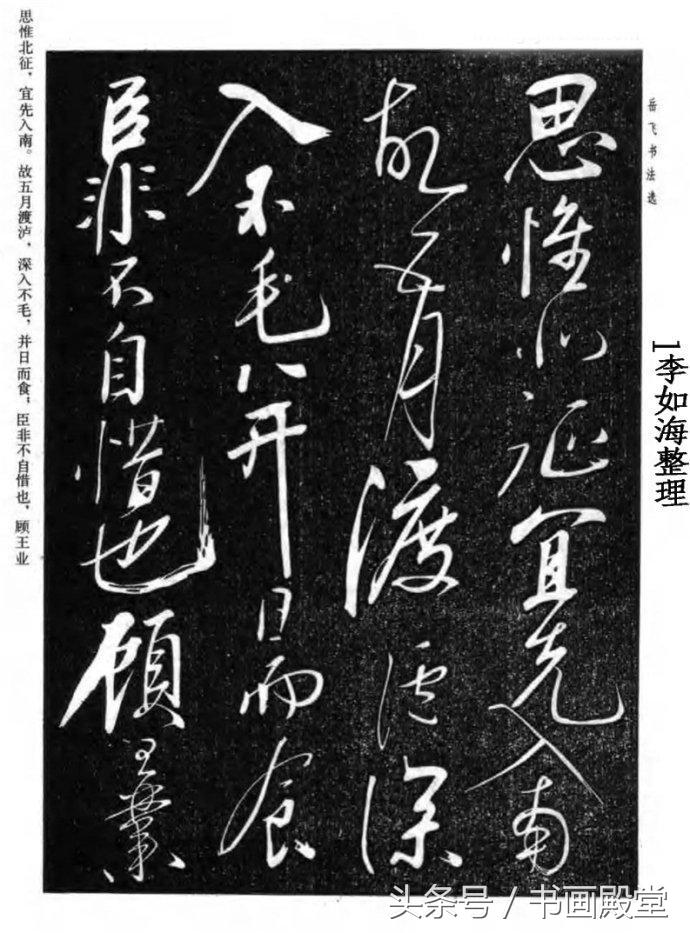 岳飞书法选
1李如海整理
思惟北征宜先入南
故五月渡瀘深
入不毛并日而食
臣非不自惜也顾王業
思惟北征，宜先入南。故五月渡泸，深入不毛，并日而食；臣非不自惜也，顾王业
头条号 / 书画殿堂